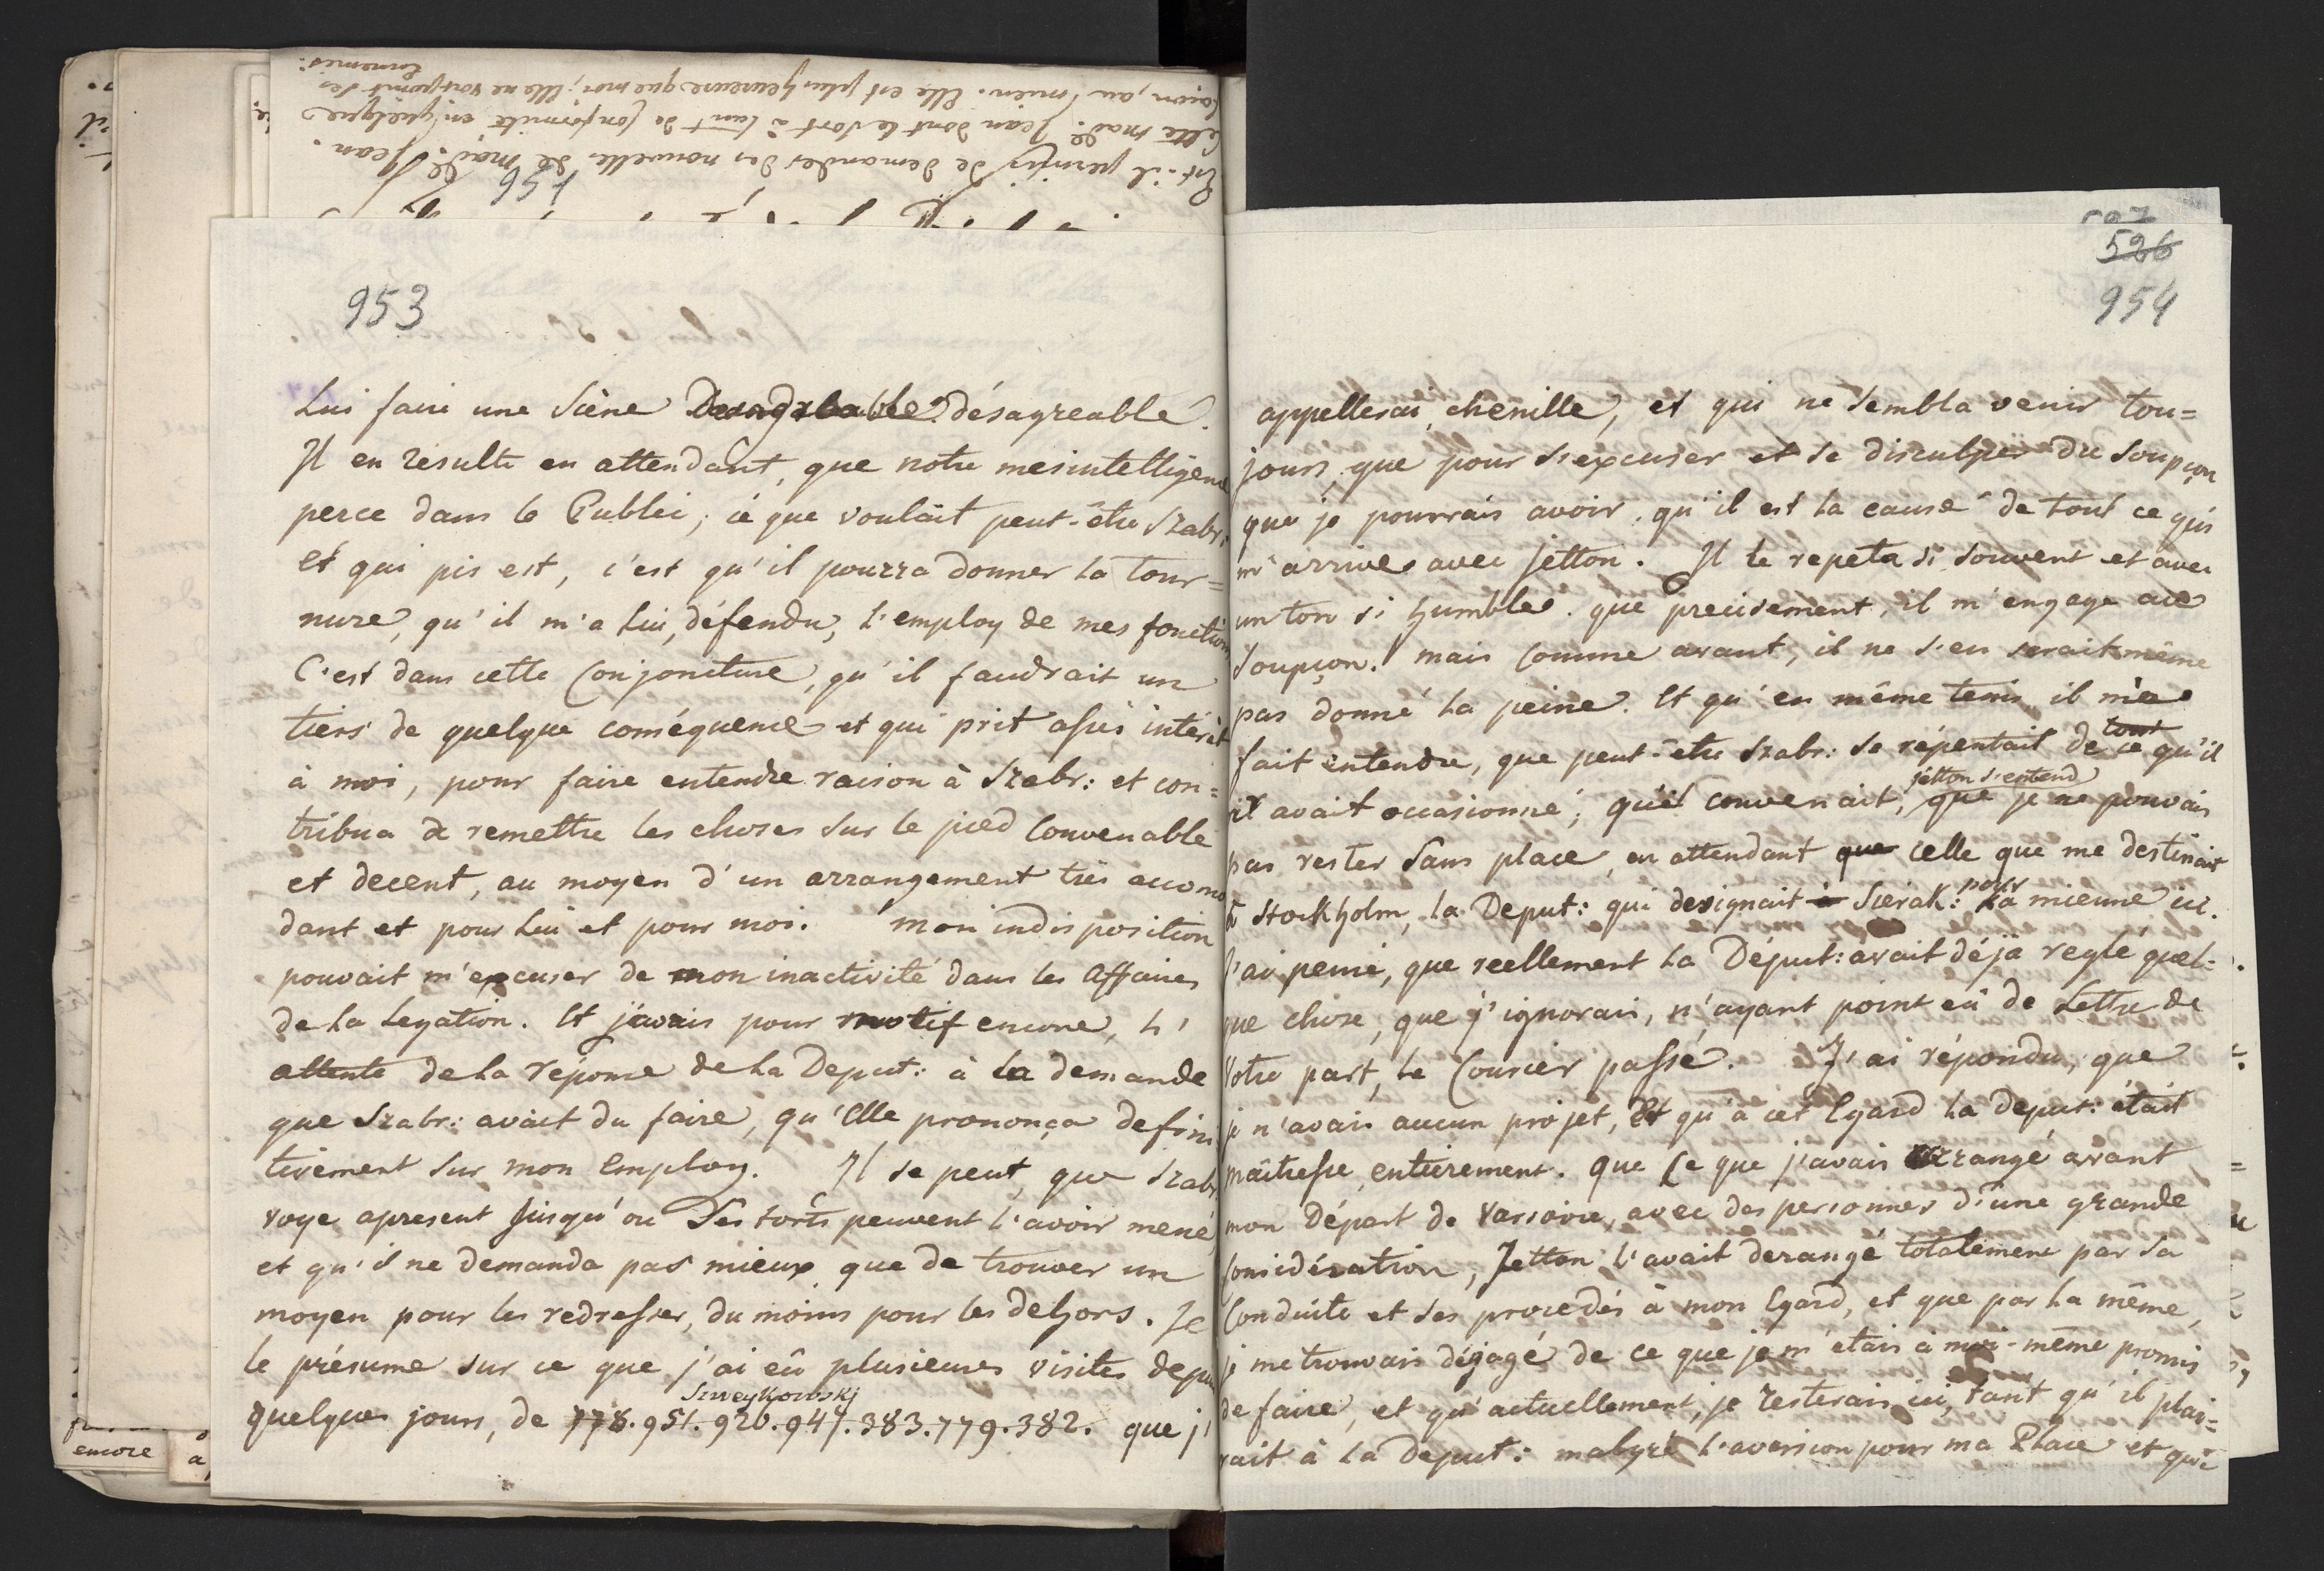 Est-il permis de demander des nouvelles de Mad: Jean.
Cette mad: Jean dont le sort a tant de conformité en quelque
façon, au mien. Elle est plus heureuse que moi; Elle ne voit point ses
Ennemis.
756
encore
953
Lui faire une Scène désagreable.
Il en resulte en attendant, que notre mesintelligence
perce dans le Public; cé que voulait peut-être Szabr:
et qui pis est, c'est qu'il pourra donner la tour=
nure, qu'il m'a Lui, défendu, l'employ de mes fonctions
C'est dans cette Conjoncture, qu'il faudrait un
tiers de quelque conséquence et qui prit assés intérêt
à moi, pour faire entendre raison à Szabr: et con=
tribua de remettre les choses sur le pied Convenable
et decent, au moyen d'un arrangement très accomo
dant et pour Lui et pour moi. mon indisposition
pouvait m'excuser de mon inactivité dans les Affaires
de la Legation. Et j'avais pour motif encore, l'
attente de la réponse de la Deput: à la demande
que Szabr: avait du faire, qu'Elle prononça defini
tivement sur mon Employ. Il se peut, que Szabr
voye apresent jusqu'ou Ses torts peuvent l'avoir mené,
et qu'il ne demanda pas mieux que de trouver un
moyen pour les redresser, du moins pour les dehors. Je
le présume sur ce que j'ai eû plusieures visites depuis
Szweykowskj
quelques jours, de 778.951.920.947.383.779.382. que j'
526
954
appellerai, chenille, et qui ne sembla venir tou=
jours, que pour s'excuser et se disculper du Soupçon
que je pourrais avoir, qu'il est la cause de tout ce qui
m'arrive avec Jetton. Il le repeta si souvent et avec
un ton si humble. que precisement, il m'engage au
Soupçon. mais Comme avant, il ne s'en serait même
pas donné la peine. Et qu'en même tems il m'a
fait entendre, que peut-être Szabr: se répentait de tout ce qu'il
jetton s'entend
il avait occasionné; qu'il convenait, que je ne pouvais
pas rester Sans place, en attendant que celle que me destinait
à Stockholm, la Deput: qui designait à Sierak: pour la mienne ici.
J'ai pensé, que reellement la Déput: avait déja reglé quel=
que chose, que j'ignorais, n'ayant point eû de Lettre de
Votre part, le Courier passé. J'ai répondu, que
je n'avais aucun projet, Et qu'à cet Egard la deput: était
maîtresse entierement. que Ce que j'avais arrangé avant
mon Départ de Varsovie, avec des personnes d'une grande
Considération, Jetton l'avait derangé totalement par sa
Conduite et ses procedés à mon Egard, et que par la même,
je me trouvais dégagé de ce que je m'étais à moi-même promis
de faire, et qu'actuellement, je resterais ici, tant qu'il plai=
rait à la Deput: malgré l'aversion pour ma Place et que